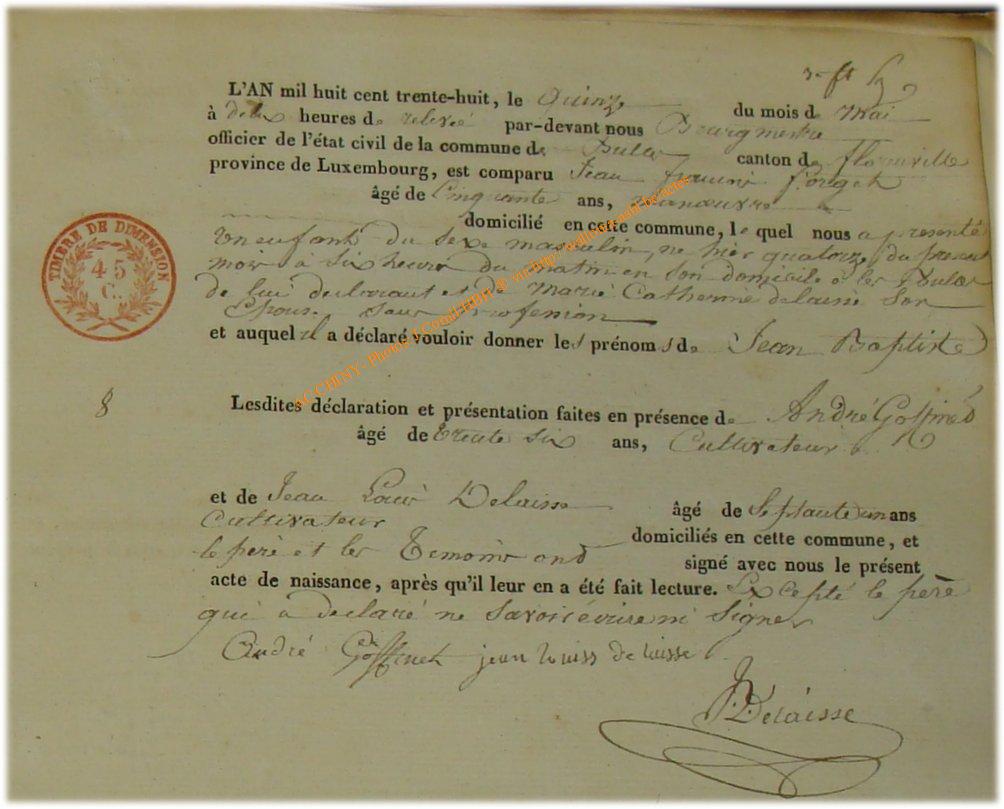 L'AN mil huit cent trente-huit, le Quinze du mois de Mai
à deux heures de relevée par-devant nous Bourgmestre
officier de l'état civil de la commune de canton de florenville
province de Luxembourg, est comparu Jean françois forget
âgé de Cinquante ans, Manœuvre
domicilié en cette commune, le quel nous a présenté
un enfant du sexe masculin, né hier quatorze du présent
mois à Six heures du matin en son domicile
de lui déclarant et de Marie Catherine delaisse Son
Epouse Sans Profession
et auquel il a déclaré vouloir donner les prénoms de Jean Baptiste
Lesdites déclaration et présentation faites en présence de André Goffinet
âgé de trente Six ans, Cultivateur
et de Jean Louis Delaisse âgé de Septante un ans
Cultivateur domiciliés en cette commune, et
le père et les Temoins ont signé avec nous le présent
acte de naissance, après qu'il leur en a été fait lecture. Excepté le père
qui a declaré ne savoir écrire ni signer
André Goffinet jean louiss de laisse
Delaisse
TIMBRE DE DIMENSION
45
C.